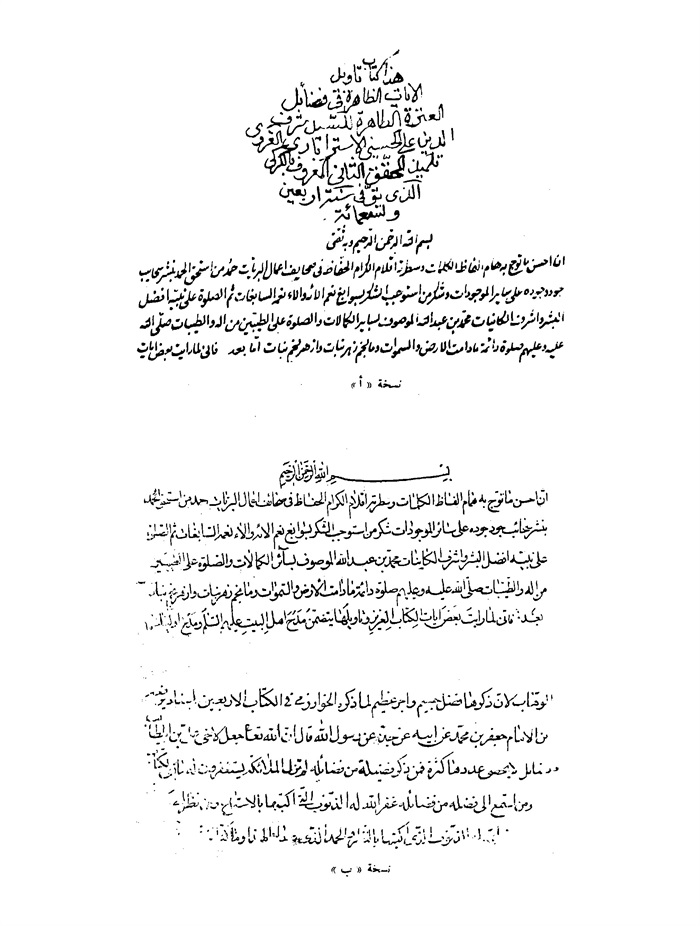 هذا كتاب تأويل
الايات الظاهرة في فضائل
العترة الطاهرة للسيد شرف
الدين علي الحسيني الاسترابادي الغروي
تلميذ المحقق الثاني المعروف بالكركي
الذي توفي سنة اربعين
وتسعمائة
بسم الله الرحمن الرحيم وبه ثقتي
ان احسن ما توج به هام الفاظ الكلمات وسطرته اقلام الكرام الحفاظ في صحايف اعمال البريات حمد من استحق الحمد بنشر سحايب
جود وجوده على ساير الموجودات وشكر من استوجب الشكر بسوابغ نعم الائه والاء نعمه السابغات ثم الصلوة على نبيه افضل
البشر واشرف الكائنات محمد بن عبد الله الموصوف بساير الكمالات والصلوة على الطيبين من اله والطيبات صلى الله
عليه وعليهم صلوة دائمة ما دامت الارض والسموات وما نجم زهر نبات وازهر نجم نبات اما بعد فاني لما رايت بعض ايات
نسخة « أ »
بسم الله الرحمن الرحيم
ان احسن ما توج به هام الفاظ الكلمات وسطرته اقلام الكرام الحفاظ في صحائف اعمال البريات حمد من استحق الحمد
بنشر سحائب جود وجوده على سائر الموجودات شكر من استوجب الشكر بسوابغ نعم الائه والاء نعمه السابغات ثم الصلوة
على نبيه افضل البشر واشرف الكائنات محمد بن عبد الله الموصوف بسائر الكمالات والصلوة على الطيبين
من اله والطيبات صلى الله عليه وعليهم صلوة دائمة ما دامت الارض والسموات وما نجم زهر نبات وازهر نجم نبات
بعد فاني لما رايت بعض ايات الكتاب العزيز وتاويلها يتضمن مدح اهل البيت عليهم السلم ومدح اوليائهم
لان ذكرها فضل جسيم واجر عظيم لما ذكره الخوارزمي في الكتاب الاربعين
عن الامام جعفر بن محمد عن ابيه عن جده عن رسول الله قال ان الله تعا جعل لاخي علي بن ابي طالب
فضائل لا يحصى عددها كثرة فمن ذكر فضيلة من فضائله لم تزل الملائكة يستغفرون له
ومن استمع الى فضله من فضائله غفر الله له الذنوب التي اكتسبها بالاستماع ومن نظر
الذنوب التي اكتسبها بالنظر والحمد لله
نسخة « ب »